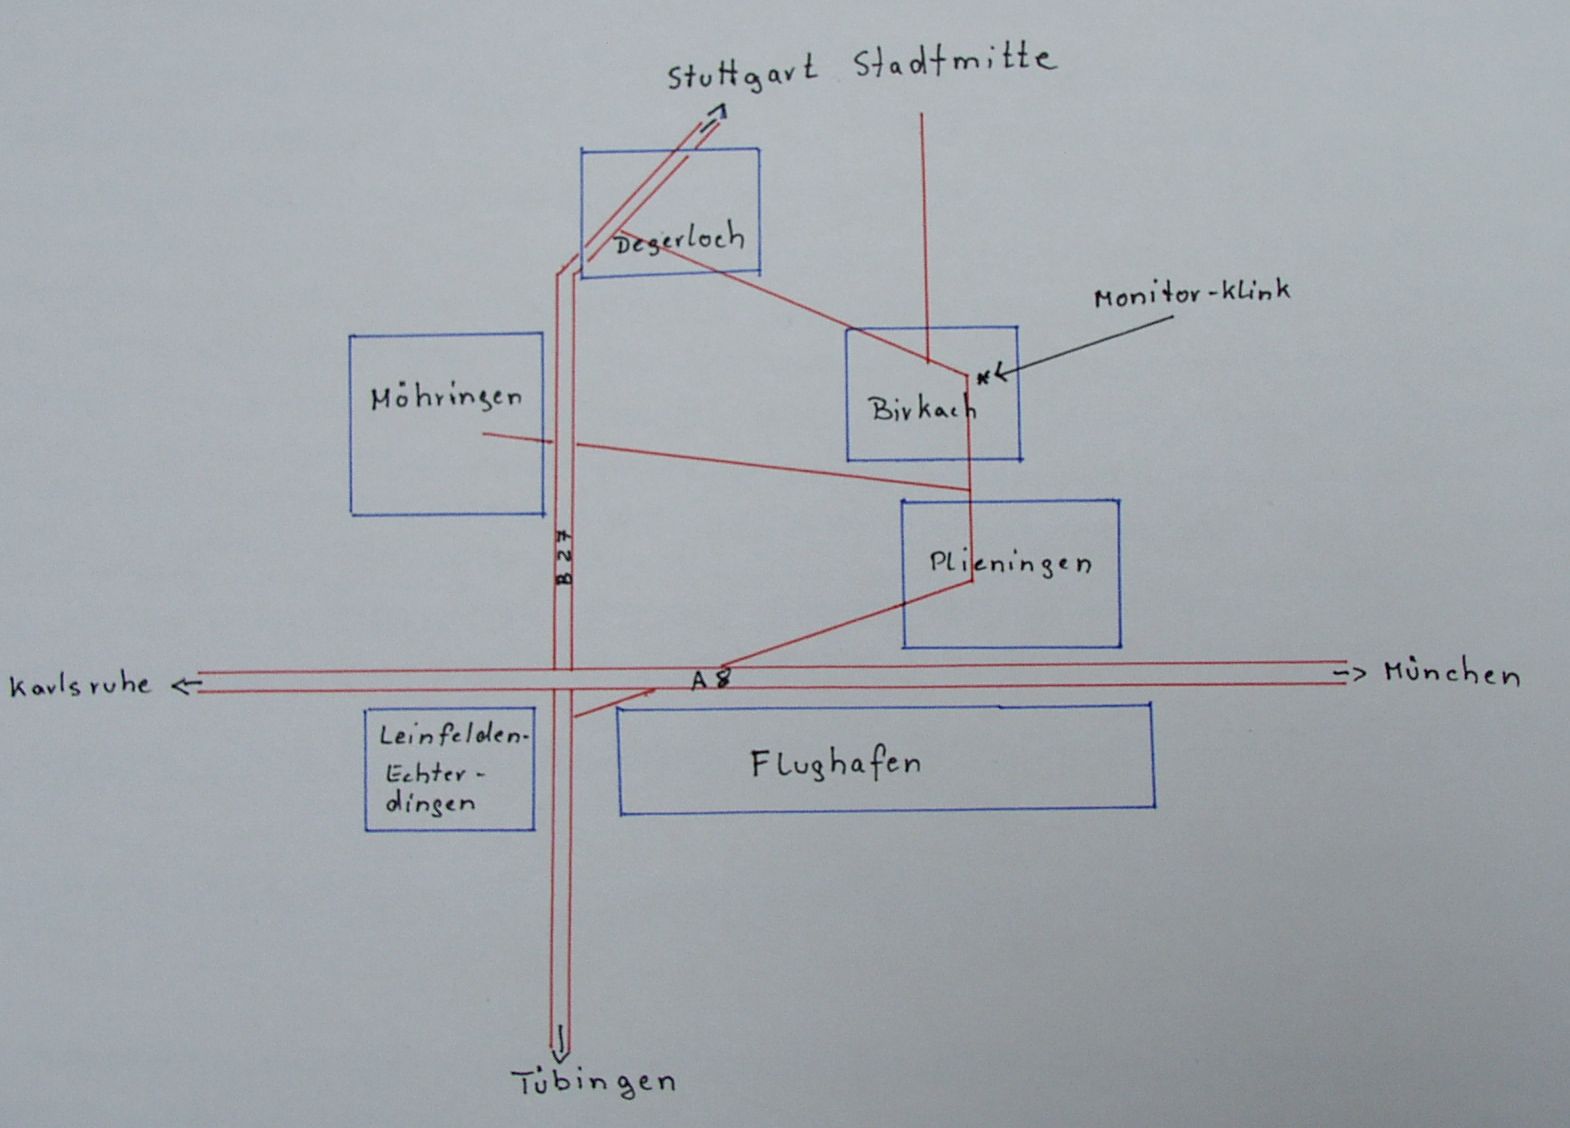 Stuttgart Stadtmitte
Degerloch
Monitor-Klink
Möhringen
Birkach
B 27
Plieningen
Karlsruhe
A 8
München
Leinfelden-
Echter-
dingen
Flughafen
Tübingen